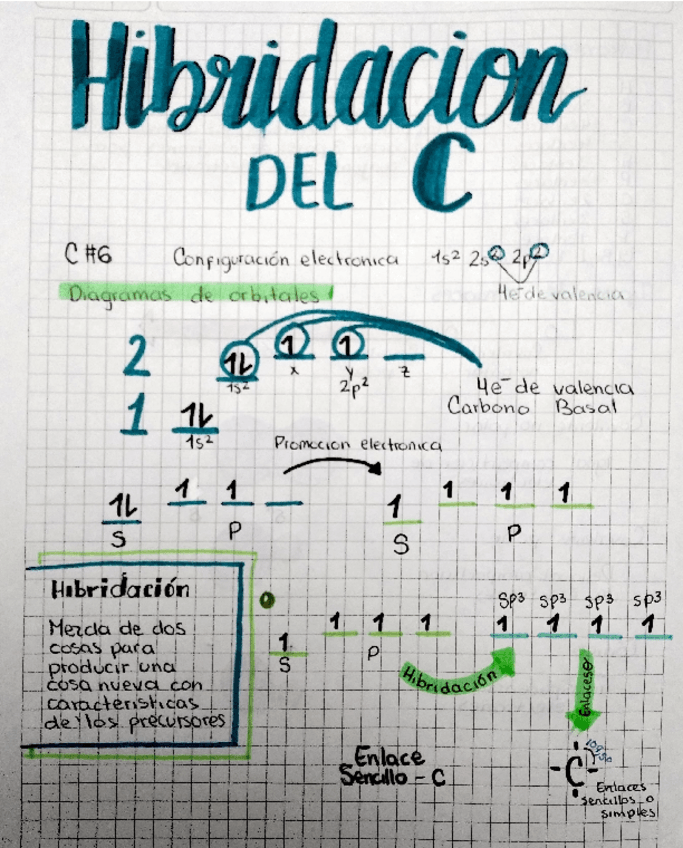 Hibridacion
DEL C
C #6 Configuración electronica 1s² 2s² 2p²
4e⁻ de valencia
Diagramas de orbitales
2 1L 1 1
1s² x y z
2p²
4e⁻ de valencia
Carbono Basal
1 1L
1s²
Promocion electronica
1L 1 1 1 1 1 1
S P S P
Hibridación
Mezcla de dos
cosas para
producir una
cosa nueva con
caracteristicas
de los precursores
sp³ sp³ sp³ sp³
1 1 1 1 1 1 1 1
S P
Hibridación
Enlaces
Enlace
Sencillo - C
-C-
Enlaces
sencillos o
simples